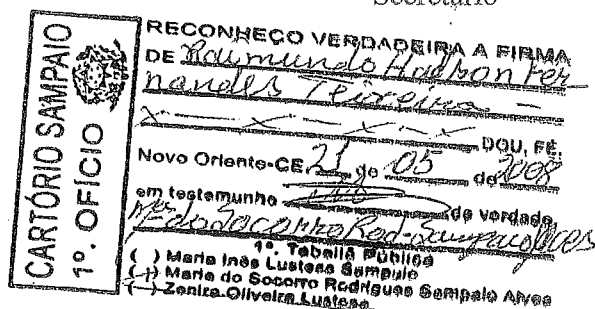 Secretário
CARTÓRIO SAMPAIO
1º. OFÍCIO
RECONHEÇO VERDADEIRA A FIRMA
DE Raimundo Hadson Fer
nandes Teixeira -
x - x - x - x DOU, FÉ.
Novo Oriente-CE 21 de 05 de 2008
em testemunho da verdade
Mª do Socorro Rod. Sampaio Alves
1ª. Tabeliã Pública
( ) Maria Inês Lustosa Sampaio
( ) Maria do Socorro Rodrigues Sampaio Alves
( ) Zenira Oliveira Lustosa